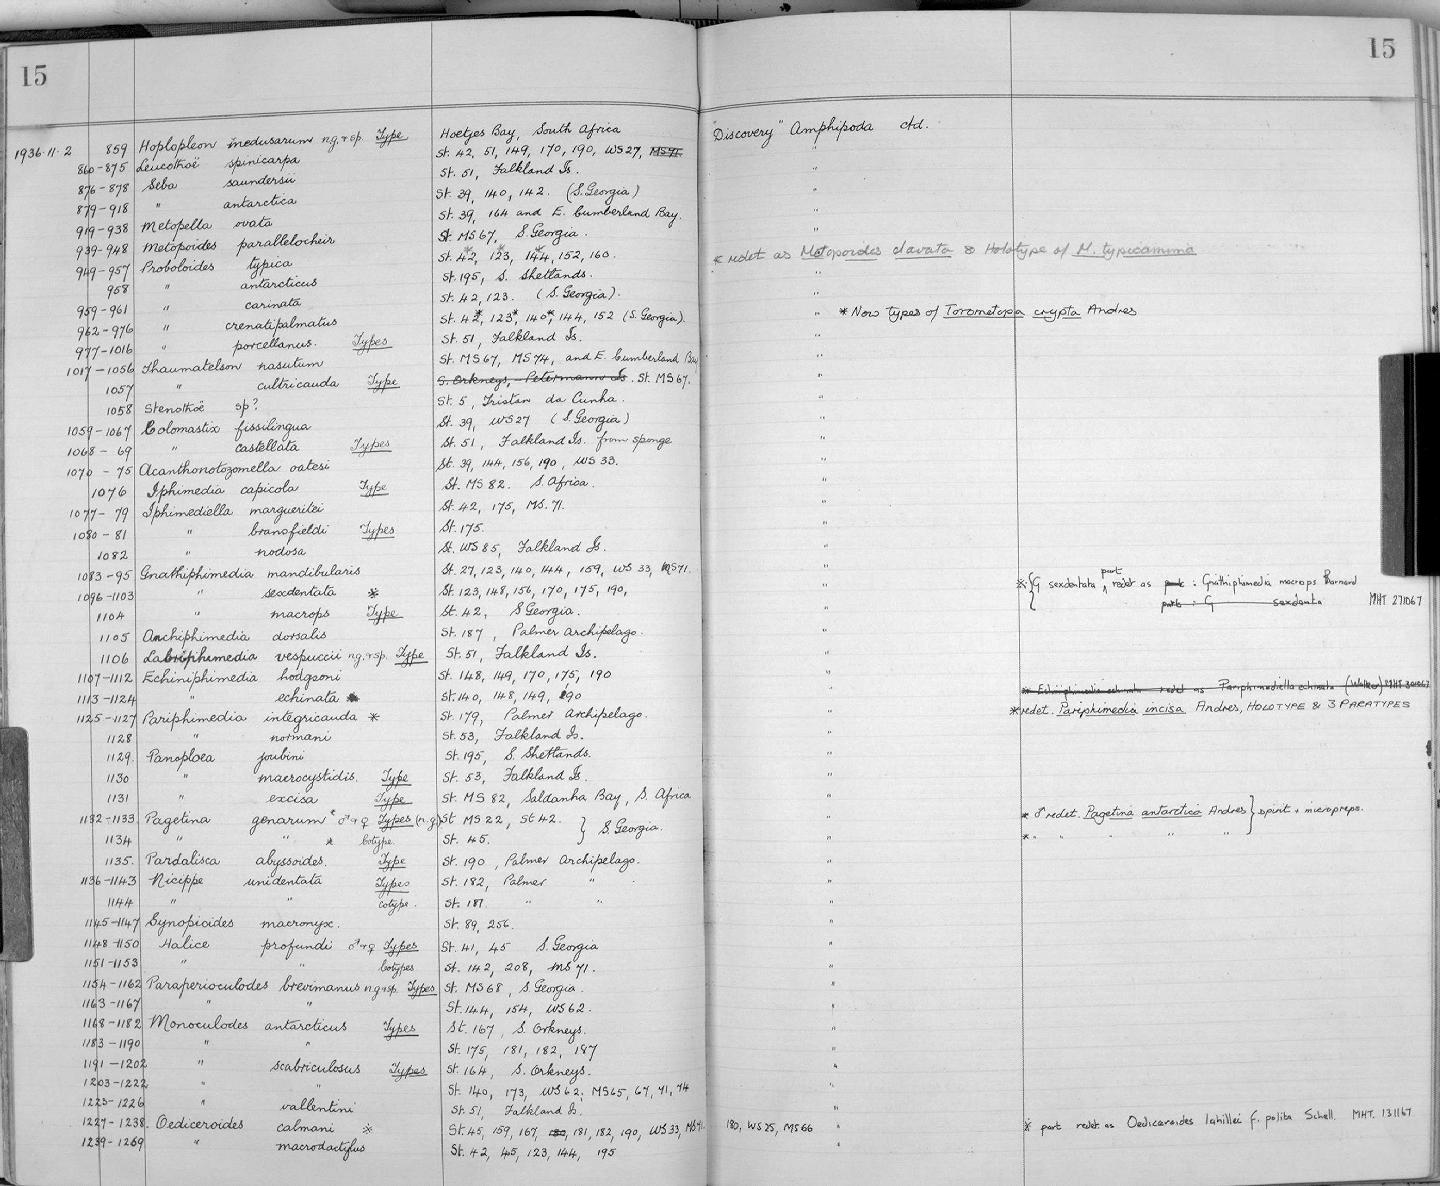 15
15
1936·11·2 859 Hoplopleon medusarum n.g.+sp. Type Hoetjes Bay, South Africa "Discovery" Amphipoda ctd.
860-875 Leucothoë spinicarpa St. 42, 51, 149, 170, 190, WS27, MS71 "
876-878 Seba saundersii St. 51, Falkland Is. "
879-918 " antarctica St. 39, 140, 142. (S. Georgia) "
919-938 Metopella ovata St. 39, 164 and E. Cumberland Bay. "
939-948 Metopoides parallelocheir St. MS67, S. Georgia. "
949-957 Proboloides typica St. *42, *123, *144, 152, 160. * redet as Metopoides clavata & Holotype of M. typicamima
958 " antarcticus St. 195, S. Shetlands. "
959-961 " carinata St. 42, 123. (S. Georgia). "
962-976 " crenatipalmatus St. 42*, 123*, 140*, 144, 152 (S. Georgia). " * Now types of Torometopa crypta Andres
977-1016 " porcellanus. Types St. 51, Falkland Is. "
1017-1056 Thaumatelson nasutum St. MS67, MS74, and E. Cumberland Bay "
1057 " cultricauda Type S. Orkneys, Petermann Is. St. MS67. "
1058 Stenothoë sp? St. 5, Tristan da Cunha. "
1059-1067 Colomastix fissilingua St. 39, WS27 (S. Georgia) "
1068-69 " castellata Types St. 51, Falkland Is. from sponge "
1070-75 Acanthonotozomella oatesi St. 39, 144, 156, 190, WS33. "
1076 Iphimedia capicola Type St. MS82. S. Africa. "
1077-79 Iphimediella margueritei St. 42, 175, MS.71. "
1080-81 " bransfieldi Types St. 175. "
1082 " nodosa St. WS85, Falkland Is. "
1083-95 Gnathiphimedia mandibularis St. 27, 123, 140, 144, 159, WS33, MS71. "
1096-1103 " sexdentata * St. 123, 148, 156, 170, 175, 190, " * { G sexdentata part redet as part : Gnathiphimedia macrops Barnard
1104 " macrops Type St. 42, S Georgia. " part : G sexdenta MHT 271067
1105 Anchiphimedia dorsalis St. 187, Palmer Archipelago. "
1106 Labriphimedia vespuccii n.g.+sp. Type St. 51, Falkland Is. "
1107-1112 Echiniphimedia hodgsoni St. 148, 149, 170, 175, 190 "
1113-1124 " echinata * St 140, 148, 149, 190 " * Echiniphimedia echinata redet as Pariphimediella echinata (Walker) MHT 301067
1125-1127 Pariphimedia integricauda * St. 179, Palmer Archipelago. " * redet. Pariphimedia incisa Andres, HOLOTYPE & 3 PARATYPES
1128 " normani St. 53, Falkland Is. "
1129. Panoploea joubini St. 195, S. Shetlands. "
1130 " macrocystidis. Type St. 53, Falkland Is. "
1131 " excisa Type St. MS 82, Saldanha Bay, S. Africa "
1132-1133. Pagetina genarum * ♂+♀ Types (n.g.) St MS22, St 42. } S. Georgia. " * ♂ redet. Pagetina antarctica Andres } spirit + micropreps.
1134 " " * Cotype. St. 45. " * " " " " "
1135. Pardalisca abyssoides. Type St. 190, Palmer Archipelago. "
1136-1143 Nicippe unidentata Types St. 182, Palmer " "
1144 " " cotype. St. 187. " " "
1145-1147 Synopioides macronyx. St. 89, 256. "
1148-1150 Halice profundi ♂+♀ Types St. 41, 45 S. Georgia "
1151-1153 " " Cotypes St. 142, 208, MS 71. "
1154-1162 Paraperioculodes brevimanus n.g.+sp. Types St. MS68, S. Georgia. "
1163-1167 " " St. 144, 154, WS62. "
1168-1182 Monoculodes antarcticus Types St. 167, S. Orkneys. "
1183-1190 " " St. 175, 181, 182, 187 "
1191-1202 " scabriculosus Types St. 164, S. Orkneys. "
1203-1222 " " St. 140, 173, WS62, MS65, 67, 71, 74 "
1223-1226 " vallentini St. 51, Falkland Is. "
1227-1238. Oediceroides calmani * St. 45, 159, 167, 180, 181, 182, 190, WS33, MS71. 180, WS25, MS66 " * part redet as Oediceroides lahillei f. polita Schell. MHT. 131167
1239-1269 " macrodactylus St. 42, 45, 123, 144, 195 "